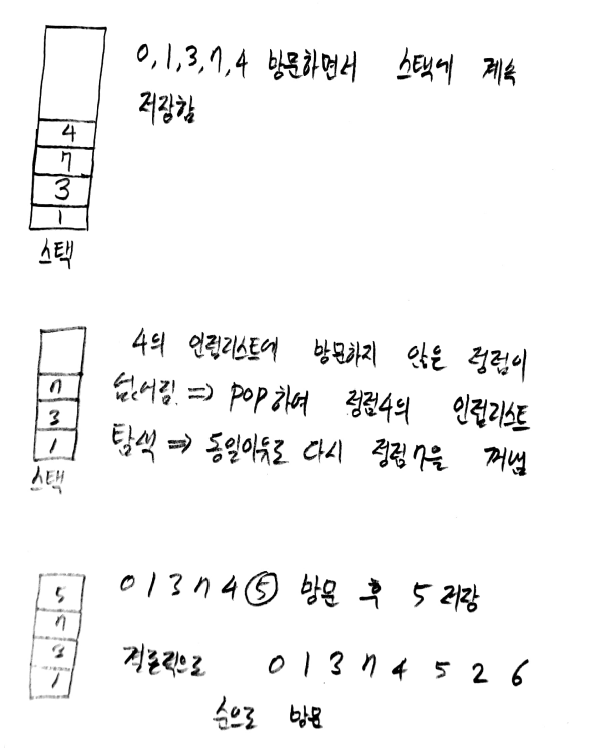 0, 1, 3, 7, 4 방문하면서 스택에 계속
저장함
4
7
3
1
스택
4의 인접리스트에 방문하지 않은 정점이
없어짐 => POP하여 정점4의 인접리스트
탐색 => 동일이유로 다시 정점7을 꺼냄
7
3
1
스택
0 1 3 7 4 5 방문 후 5 저장
5
7
3
1
최종적으로 0 1 3 7 4 5 2 6
순으로 방문